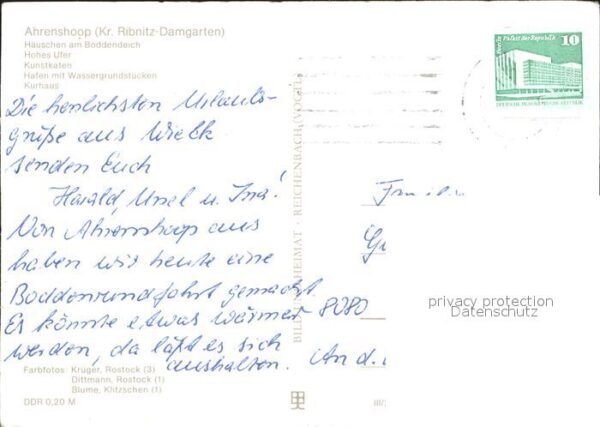 Ahrenshoop (Kr. Ribnitz-Damgarten)
Häuschen am Boddendeich
Hohes Ufer
Kunstkaten
Hafen mit Wassergrundstücken
Kurhaus
Die herzlichsten Urlaubs-
grüße aus Wieck
senden Euch
Harald, Ursel u. Ina!
Von Ahrenshoop aus
haben wir heute eine
Boddenrundfahrt gemacht.
Es könnte etwas wärmer
werden, da läßt es sich
aushalten.
Farbfotos: Krüger, Rostock (3)
Dittmann, Rostock (1)
Blume, Klitzschen (1)
DDR 0,20 M
BILD UND HEIMAT · REICHENBACH (VOGTL)
Berlin, Palast der Republik
10
DEUTSCHE DEMOKRATISCHE REPUBLIK
Familie
8080
An d.
privacy protection
Datenschutz